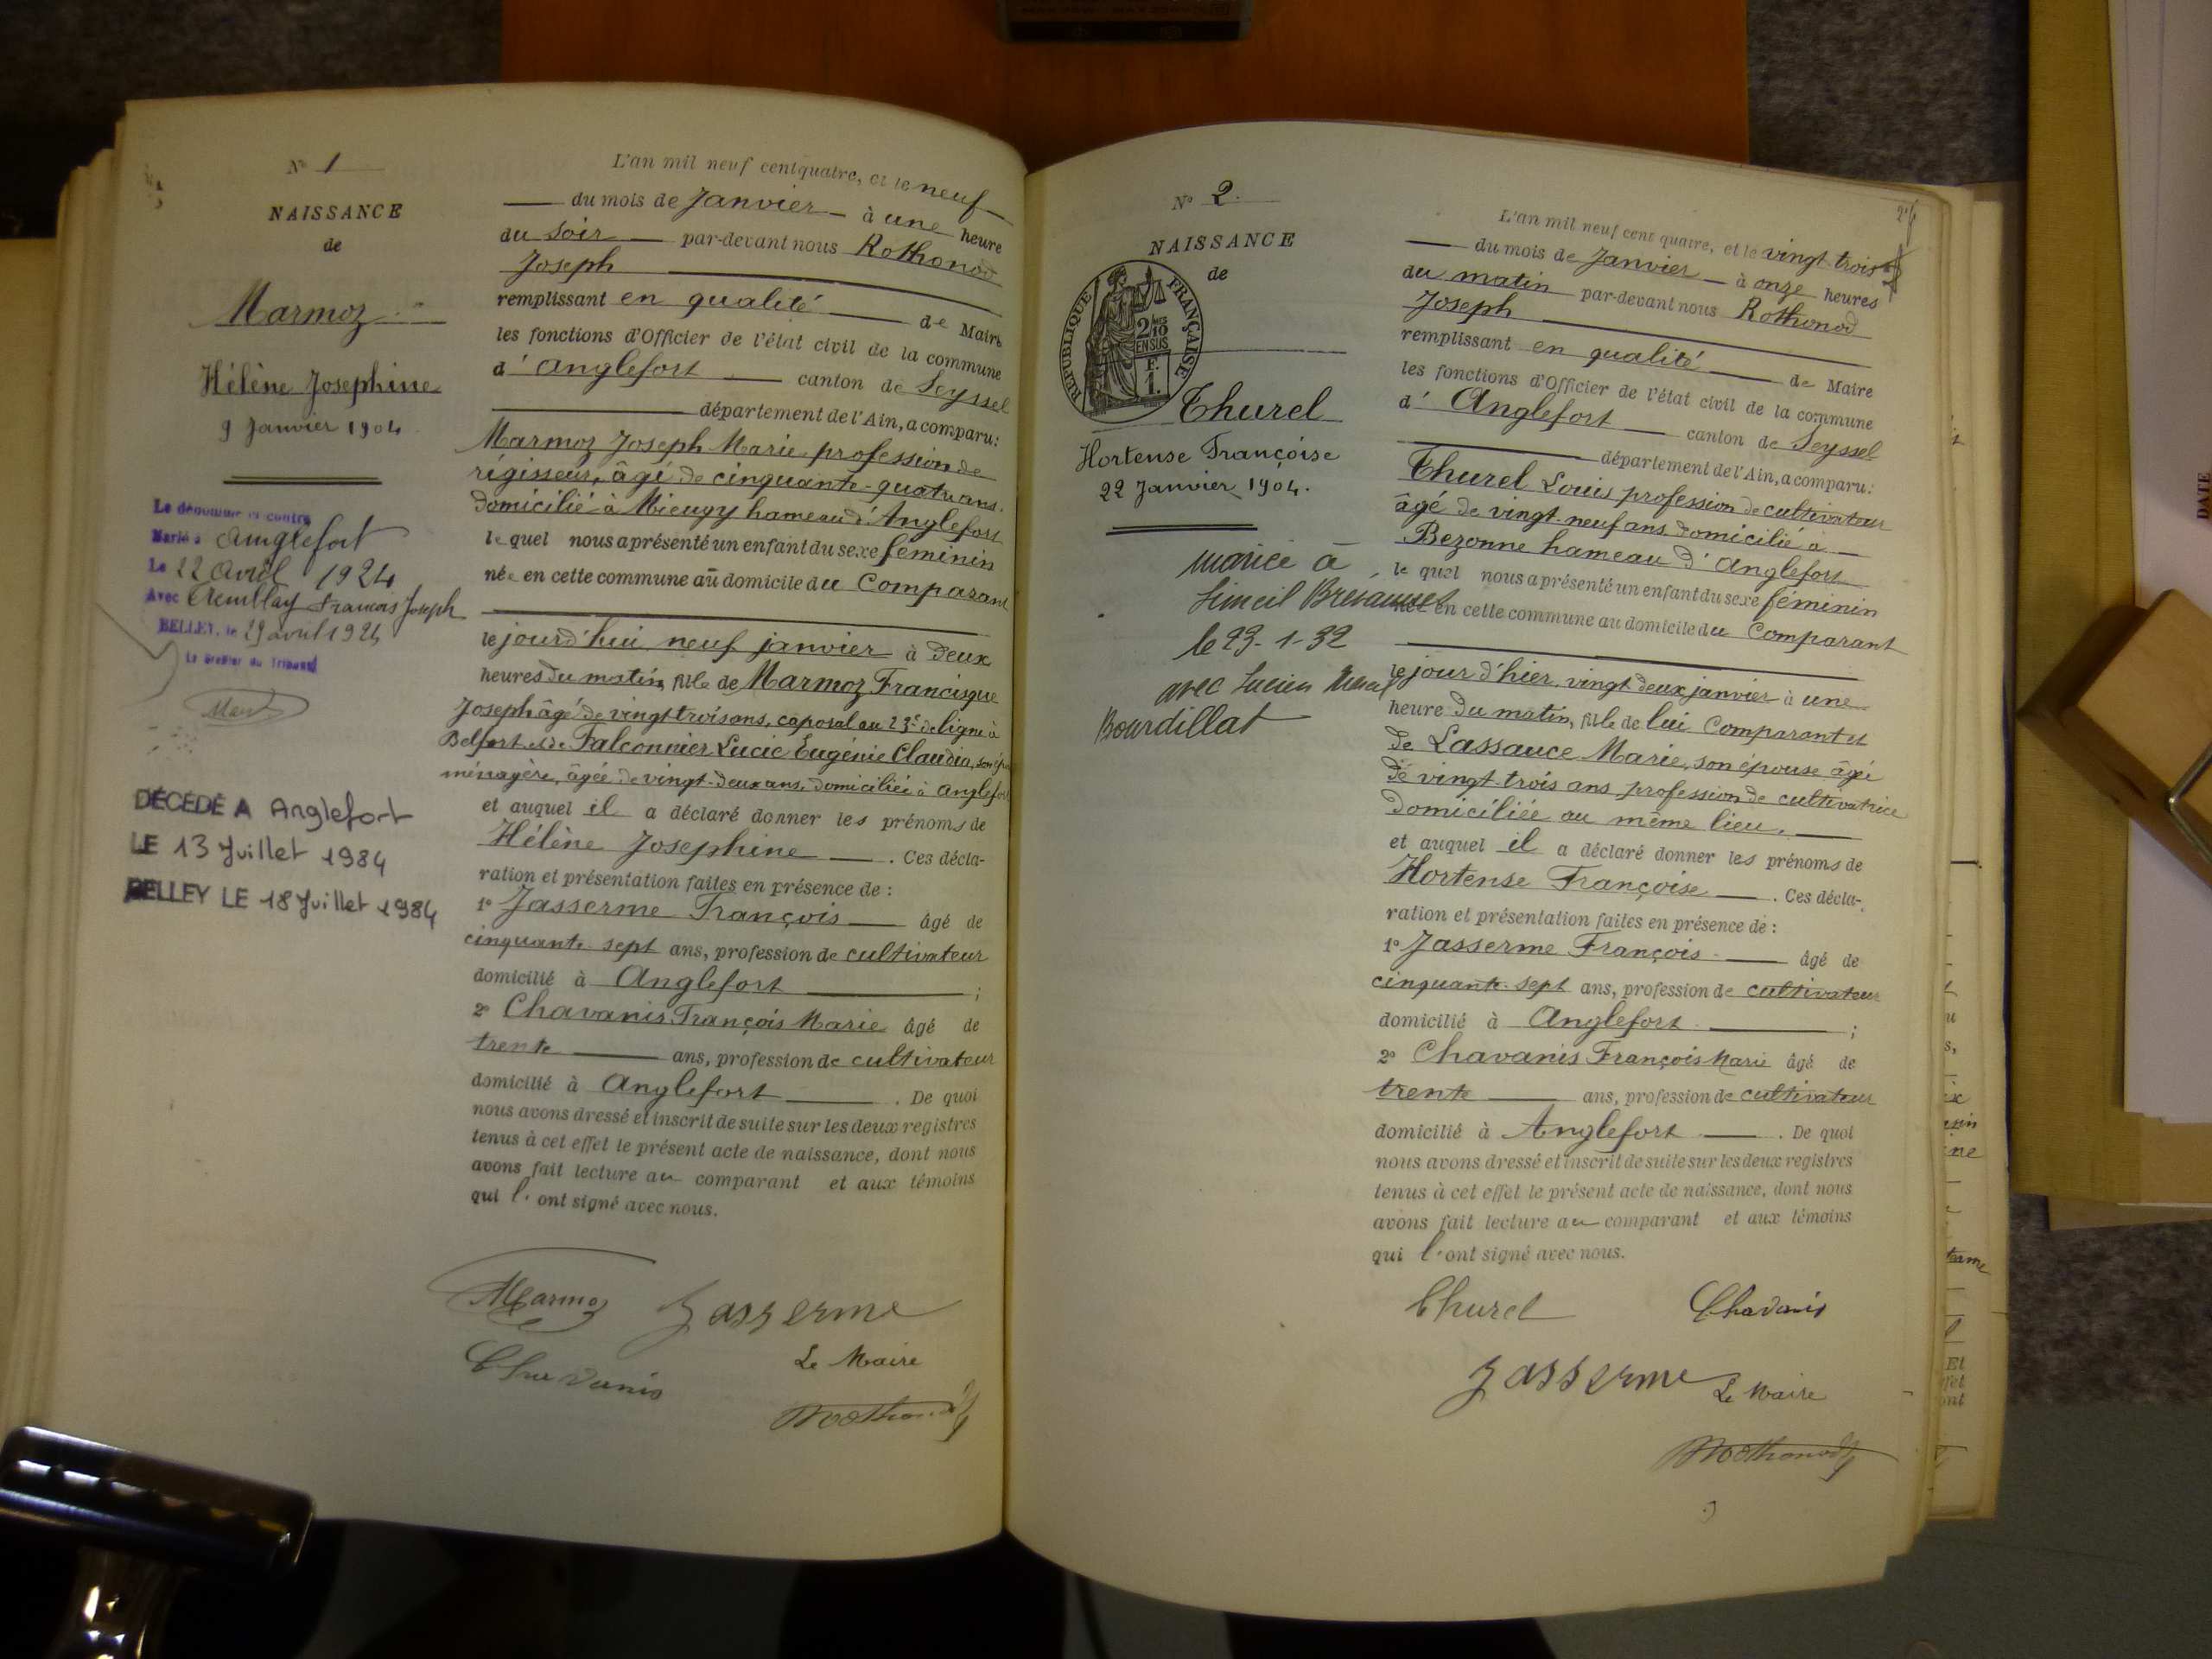 N° 1
NAISSANCE
de
Marmoz
Hélène Josephine
9 Janvier 1904
Le dénommé ci-contre
Marié à Anglefort
Le 22 avril 1924
Avec François Joseph
BELLEY, le 29 avril 1924
Le Greffier du Tribunal
DÉCÉDÉ A Anglefort
LE 13 Juillet 1984
BELLEY LE 18 Juillet 1984
L'an mil neuf cent quatre, et le neuf
du mois de Janvier à une heure
du soir par-devant nous Rothonod
Joseph
remplissant en qualité de Maire
les fonctions d'Officier de l'état civil de la commune
d' Anglefort canton de Seyssel
département de l'Ain, a comparu:
Marmoz Joseph Marie profession de
régisseur, âgé de cinquante-quatre ans,
domicilié à Mieugy hameau d'Anglefort
lequel nous a présenté un enfant du sexe féminin
née en cette commune au domicile du Comparant
le jourd'hui neuf janvier à deux
heures du matin, fille de Marmoz Francisque
Joseph âgé de vingt trois ans, caporal au 23e de ligne à
Belfort et de Falconnier Lucie Eugenie Claudia, son
ménagère, âgée de vingt-deux ans, domiciliée à Anglefort
et auquel il a déclaré donner les prénoms de
Hélène Josephine . Ces décla-
ration et présentation faites en présence de :
1° Jasserme François âgé de
cinquante sept ans, profession de cultivateur
domicilié à Anglefort ;
2° Chavanis François Marie âgé de
trente ans, profession de cultivateur
domicilié à Anglefort . De quoi
nous avons dressé et inscrit de suite sur les deux registres
tenus à cet effet le présent acte de naissance, dont nous
avons fait lecture au comparant et aux témoins
qui l' ont signé avec nous.
Marmoz Jasserme
Chavanis Le Maire
Rothonod
N° 2.
NAISSANCE
de
RÉPUBLIQUE FRANÇAISE
2/10
EN SUS
F.
1.
Thurel
Hortense Françoise
22 Janvier 1904.
mariée à
le 23-1-32
avec Lucien
Bourdillat
L'an mil neuf cent quatre, et le vingt-trois
du mois de Janvier à onze heures
du matin par-devant nous Rothonod
Joseph
remplissant en qualité de Maire
les fonctions d'Officier de l'état civil de la commune
d' Anglefort canton de Seyssel
département de l'Ain, a comparu:
Thurel Louis profession de cultivateur
âgé de vingt-neuf ans domicilié à
Bezonne hameau d'Anglefort
lequel nous a présenté un enfant du sexe féminin
en cette commune au domicile du Comparant
le jour d'hier, vingt deux janvier à une
heure du matin, fille de lui Comparant et
de Lassauce Marie, son épouse âgée
de vingt-trois ans profession de cultivatrice
domiciliée au même lieu.
et auquel il a déclaré donner les prénoms de
Hortense Françoise . Ces décla-
ration et présentation faites en présence de :
1° Jasserme François âgé de
cinquante-sept ans, profession de cultivateur
domicilié à Anglefort ;
2° Chavanis François Marie âgé de
trente ans, profession de cultivateur
domicilié à Anglefort . De quoi
nous avons dressé et inscrit de suite sur les deux registres
tenus à cet effet le présent acte de naissance, dont nous
avons fait lecture au comparant et aux témoins
qui l' ont signé avec nous.
Thurel Chavanis
Jasserme Le Maire
Rothonod
DATE